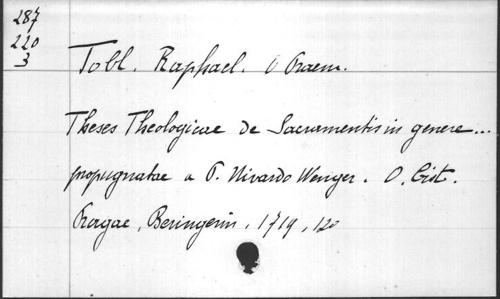 287
220
3
Tobl. Raphael. O Praem.
Theses Theologicae de Sacramentis in genere...
propugnatae a P. Nivardo Wenger. O. Cist.
Pragae, Beringerin, 1719, 12o